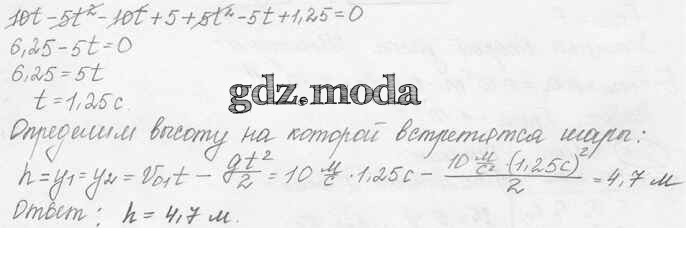 10t-5t²-10t+5+5t²-5t+1,25=0
6,25-5t=0
6,25=5t
t=1,25 с.
gdz.moda
Определим высоту на которой встретятся шары:
h=y₁=y₂=V₀₁t - gt²/2 = 10 м/с · 1,25с - 10 м/с² (1,25с)²/2 = 4,7 м
Ответ: h = 4,7 м.